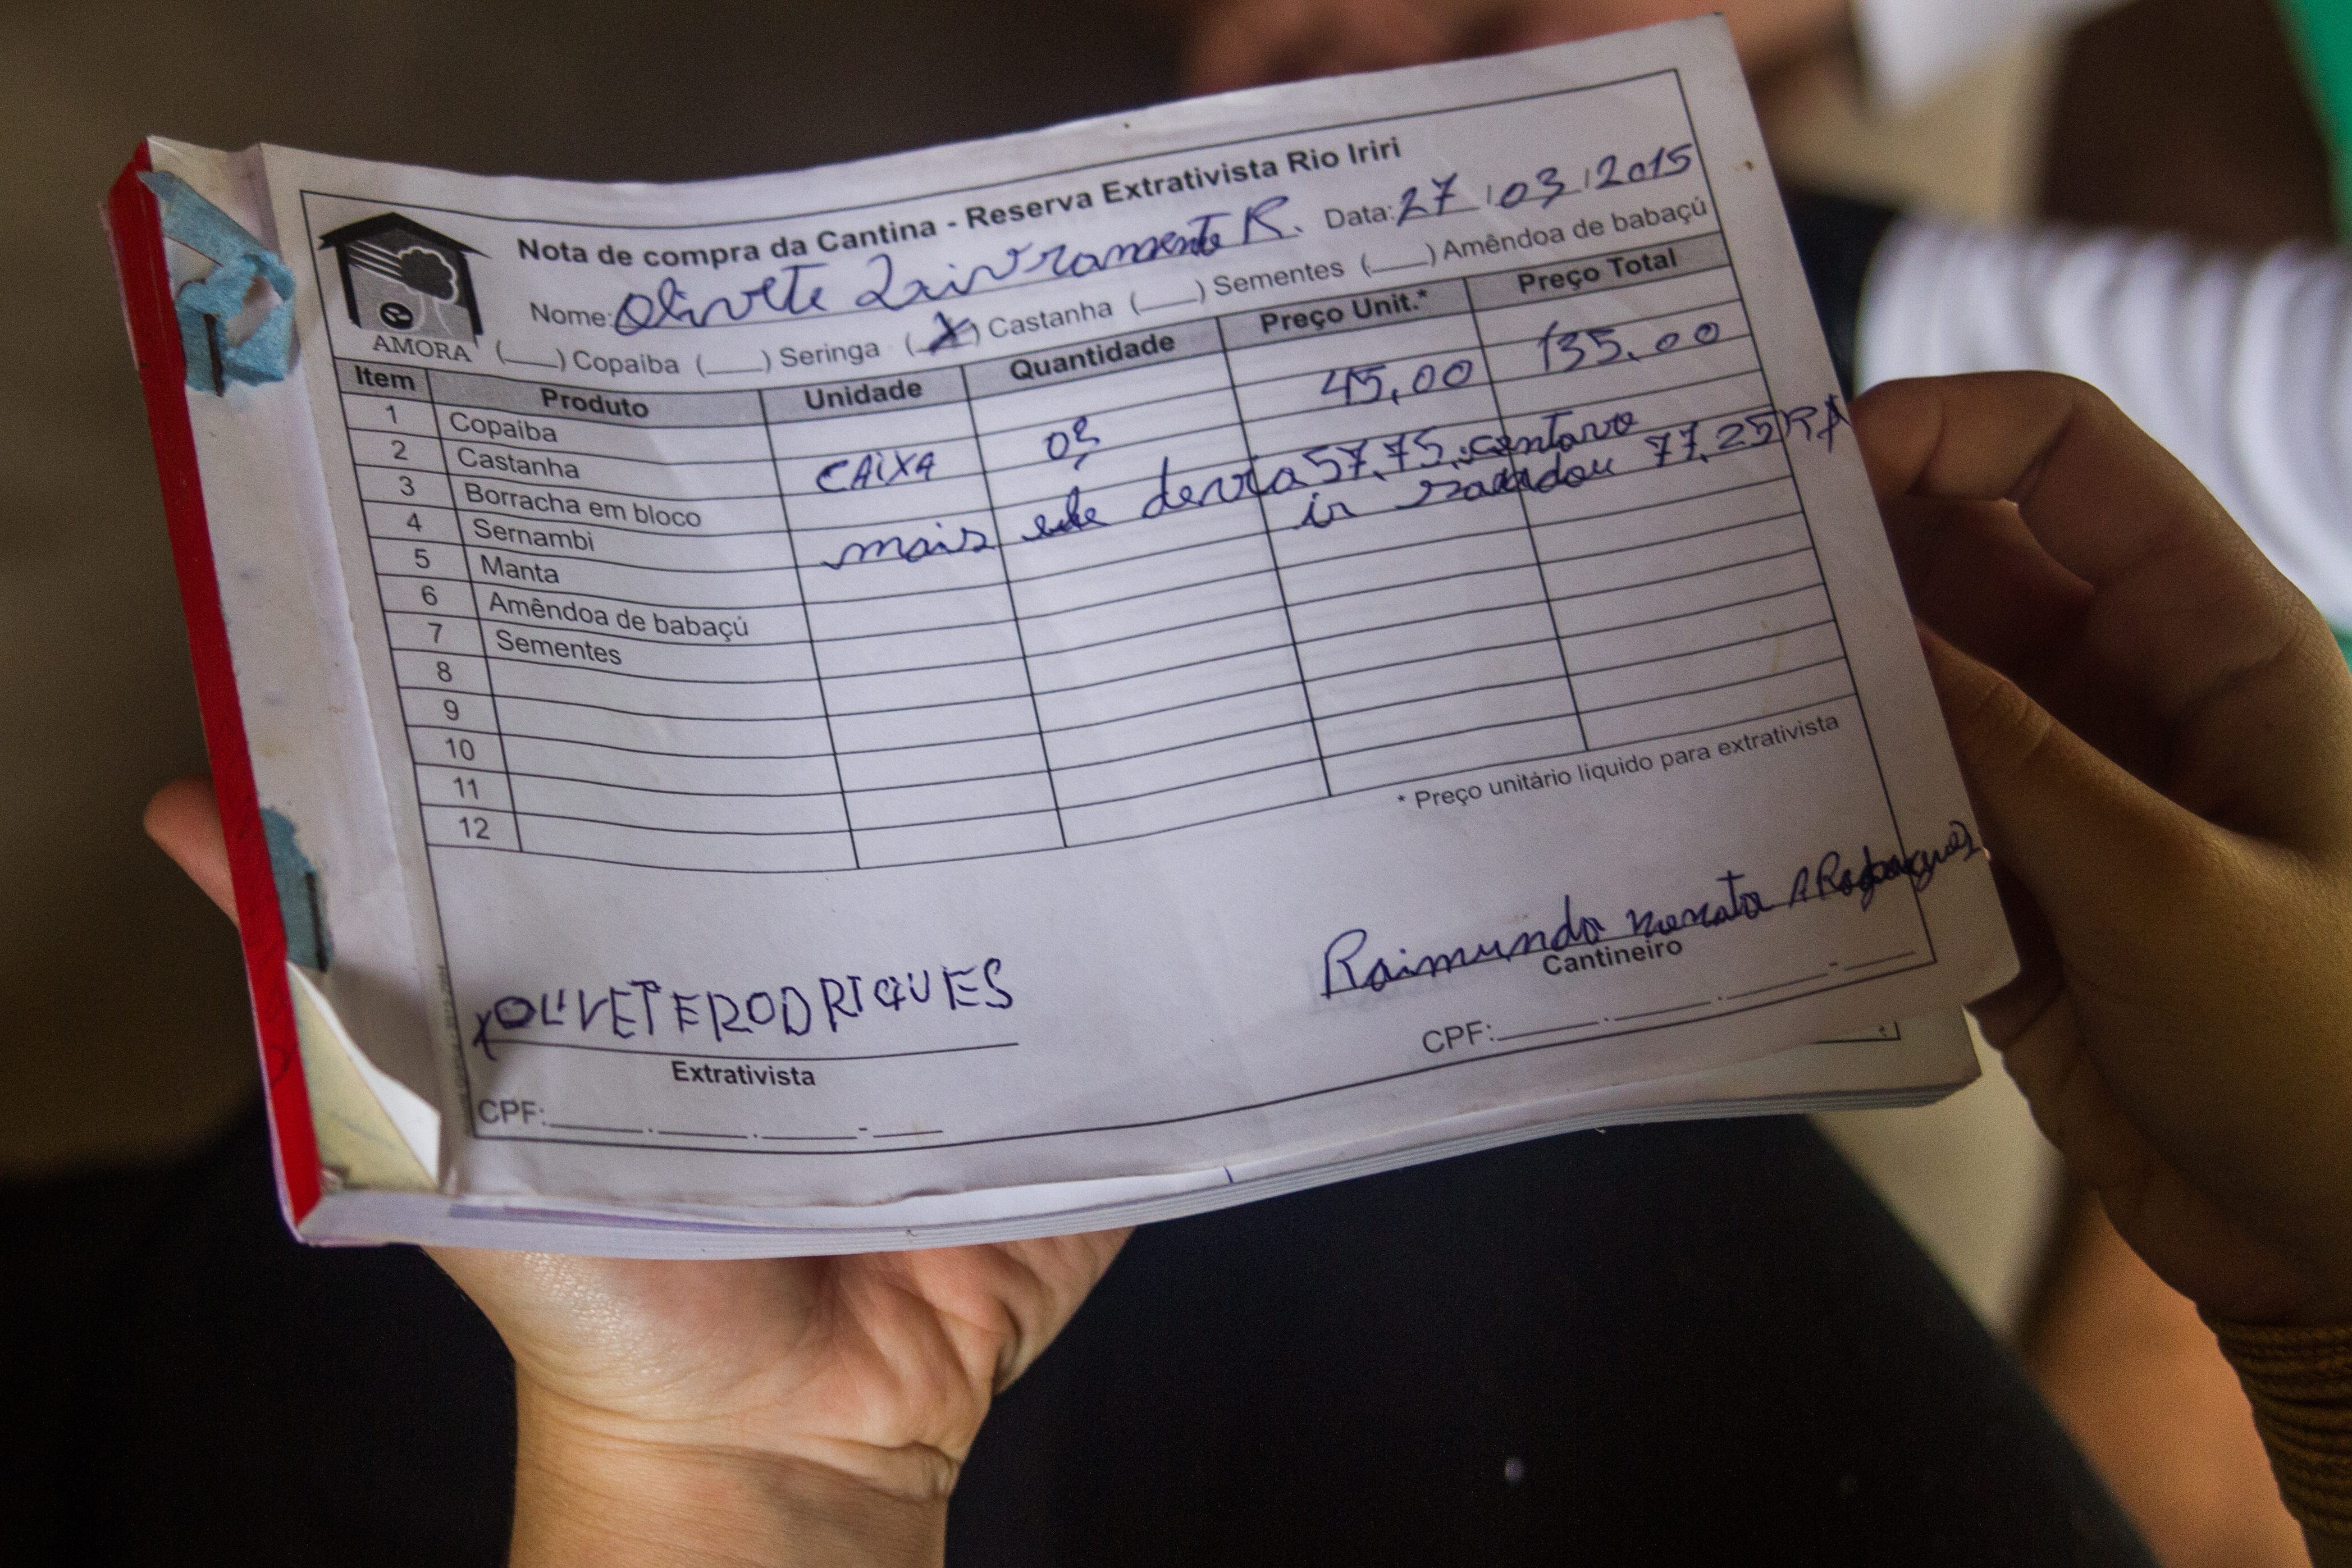 Nota de compra da Cantina - Reserva Extrativista Rio Iriri
Nome: Olivete Laivramento R. Data: 27/03/2015
AMORA (___) Copaiba (___) Seringa (_X_) Castanha (___) Sementes (___) Amêndoa de babaçú
Item Produto Unidade Quantidade Preço Unit.* Preço Total
1 Copaiba
2 Castanha CAIXA 03 45,00 135,00
3 Borracha em bloco
4 Sernambi mais ele devia 57,75 centavo
5 Manta 77,25
6 Amêndoa de babaçú
7 Sementes
8
9
10
11
12
* Preço unitário líquido para extrativista
XOLIVETERODRIQUES Raimundo A
Extrativista Cantineiro
CPF:____.____.____-___ CPF:____.____.____-___